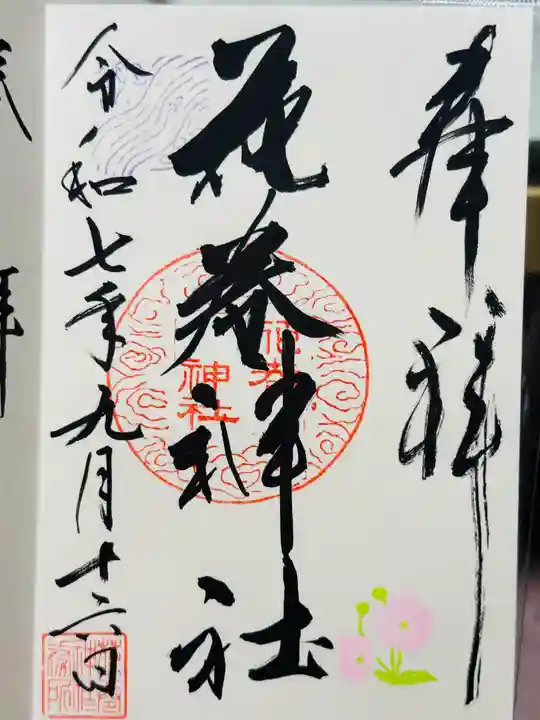 奉拝
花巻神社
令和七年九月十六日
神社